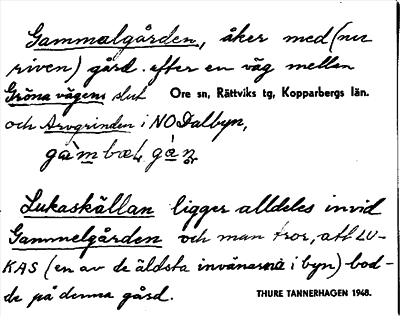 Gammalgården, åker med (nu
riven) gård. efter en väg mellan
Gröna vägens slut Ore sn, Rättviks tg, Kopparbergs län.
och Arvgrinden i NODalbyn,
Lukaskällan ligger alldeles invid
Gammelgården och man tror, att LU-
KAS (en av de äldsta invånarna i byn) bod-
de på denna gård.
THURE TANNERHAGEN 1948.